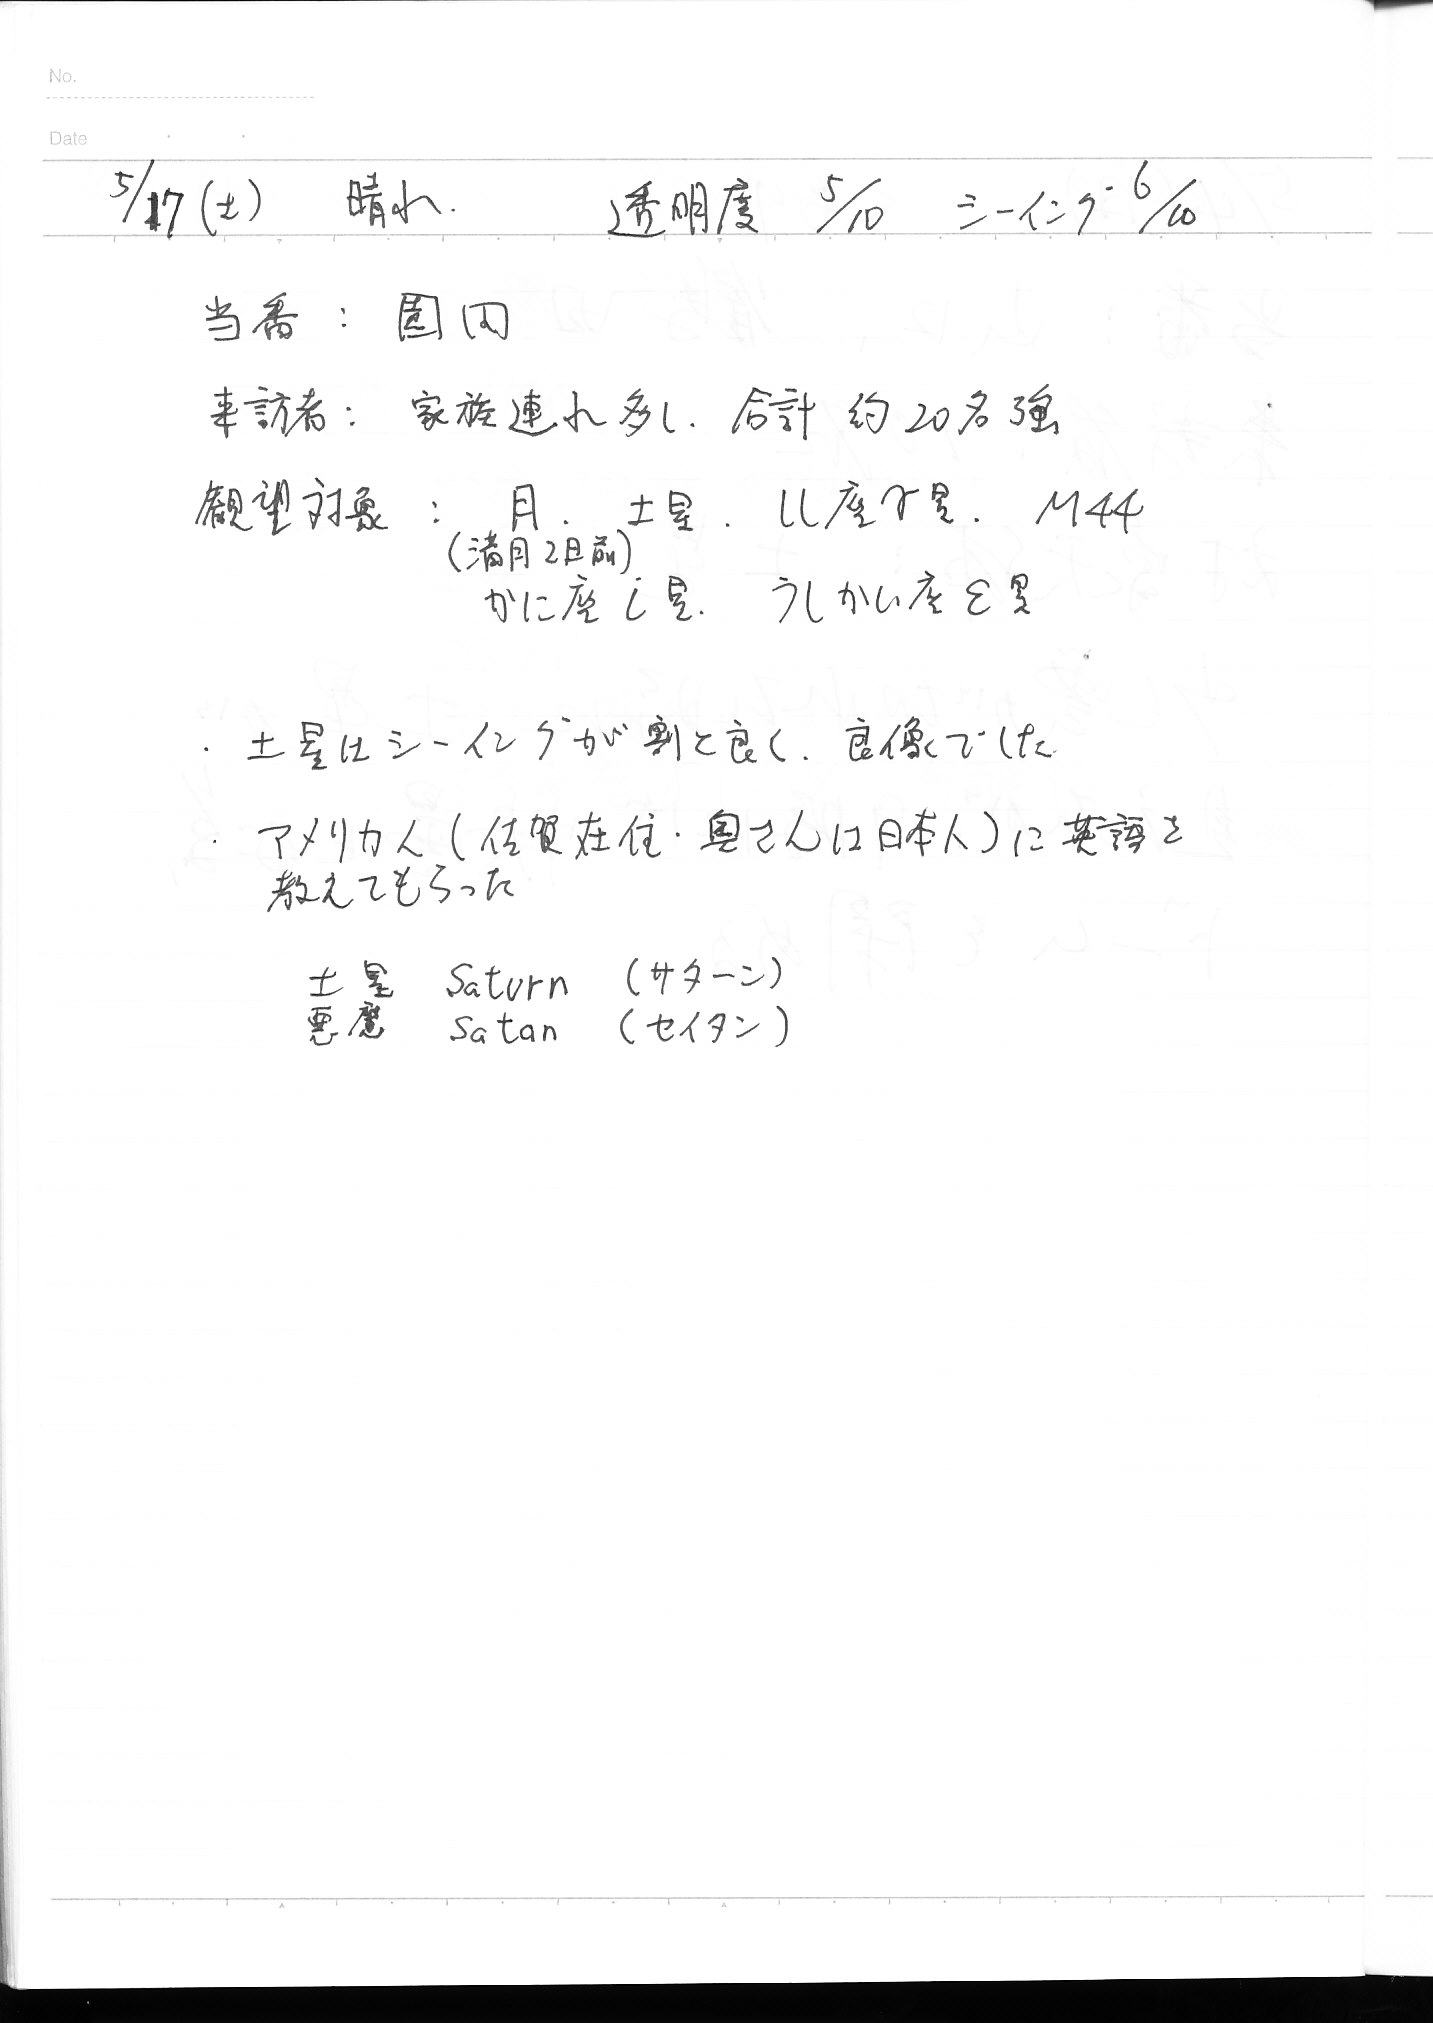 No.
Date
5/17(土) 晴れ. 透明度 5/10 シーイング 6/10
当番: 園田
来訪者: 家族連れ多し. 合計 約20名強
観望対象: 月. 土星. しし座γ星. M44
(満月2日前)
かに座ι星. うしかい座ε星
・土星はシーイングが割と良く. 良像でした
・アメリカ人(佐賀在住・奥さんは日本人)に英語を
教えてもらった
土星 Saturn (サターン)
悪魔 Satan (セイタン)